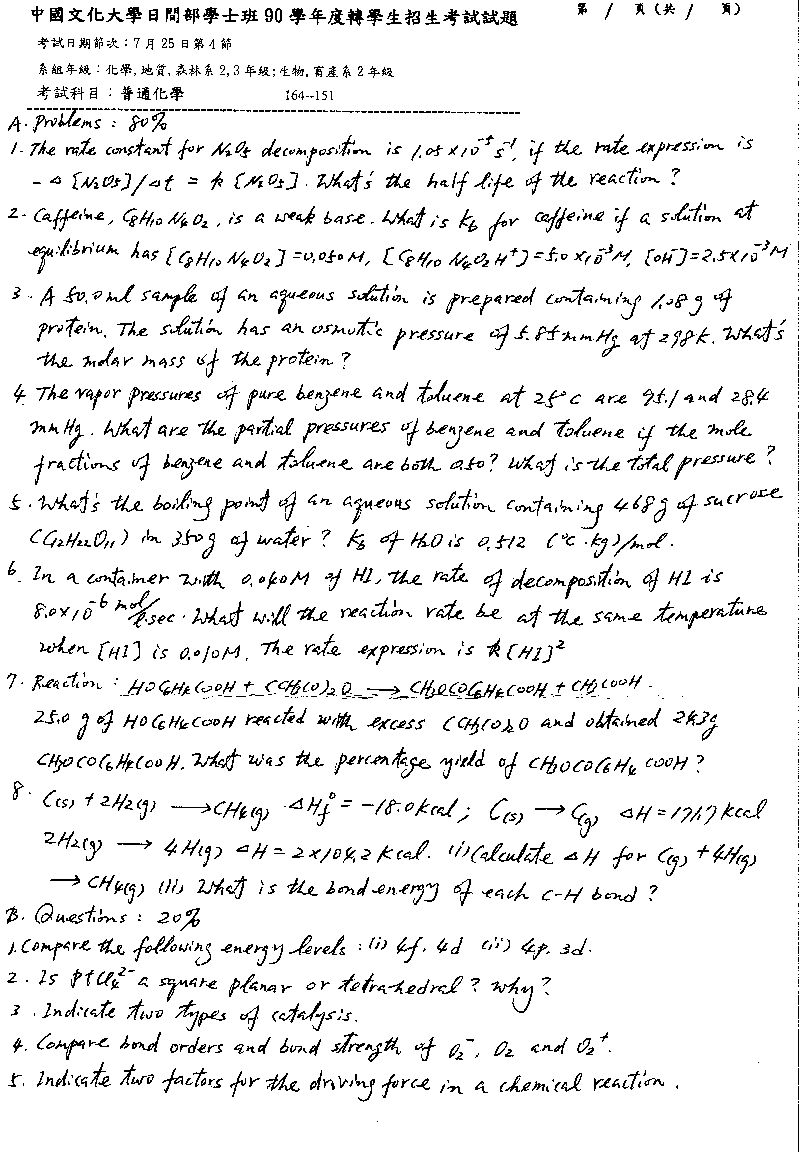 中國文化大學日間部學士班90學年度轉學生招生考試試題 第 / 頁(共 / 頁)
考試日期節次:7月25日第4節
系組年級:化學,地質,森林系2,3年級;生物,畜產系2年級
考試科目:普通化學 164--151
A. Problems: 80%
1. The rate constant for N₂O₅ decomposition is s⁻¹, if the rate expression is
-Δ[N₂O₅]/Δt = k[N₂O₅]. What's the half life of the reaction?
2. Caffeine, C₈H₁₀N₄O₂, is a weak base. What is Kb for caffeine if a solution at
equilibrium has [C₈H₁₀N₄O₂]=0.050M, [C₈H₁₀N₄O₂H⁺]=5.0×10⁻³M, [OH⁻]=2.5×10⁻³M
3. A 50.0ml sample of an aqueous solution is prepared containing 1.08g of
protein. The solution has an osmotic pressure of 5.85mmHg at 298K. What's
the molar mass of the protein?
4. The vapor pressures of pure benzene and toluene at 25°C are 95.1 and 28.4
mmHg. What are the partial pressures of benzene and toluene if the mole
fractions of benzene and toluene are both 0.50? What is the total pressure?
5. What's the boiling point of an aqueous solution containing 468g of sucrose
(C₁₂H₂₂O₁₁) in 350g of water? Kb of H₂O is 0.512 (°C·kg)/mol.
6. In a container with 0.040M of HI, the rate of decomposition of HI is
8.0×10⁻⁶ mol/ℓ.sec. What will the reaction rate be at the same temperature
when [HI] is 0.010M. The rate expression is k[HI]²
7. Reaction: HOC₆H₄COOH + (CH₃CO)₂O ⟶ CH₃OCOC₆H₄COOH + CH₃COOH.
25.0 g of HOC₆H₄COOH reacted with excess (CH₃CO)₂O and obtained 24.3g
CH₃OCOC₆H₄COOH. What was the percentage yield of CH₃OCOC₆H₄COOH?
8. C(s) + 2H₂(g) ⟶ CH₄(g) ΔHf° = -18.0 kcal; C(s) → C(g) ΔH=171.7 kcal
2H₂(g) ⟶ 4H(g) ΔH=2×104.2 kcal. (i) Calculate ΔH for C(g) + 4H(g)
⟶ CH₄(g) (ii) What is the bond energy of each C-H bond?
B. Questions: 20%
1. Compare the following energy levels: (i) 4f, 4d (ii) 4p, 3d.
2. Is PtCl₄²⁻ a square planar or tetrahedral? Why?
3. Indicate two types of catalysis.
4. Compare bond orders and bond strength of O₂⁻, O₂ and O₂⁺.
5. Indicate two factors for the driving force in a chemical reaction.